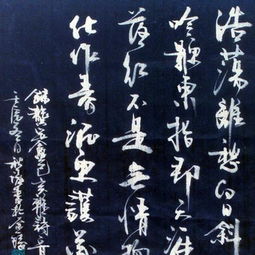 浩荡離愁白日斜
吟鞭東指即天涯
落红不是無情物
化作春泥更護花
錄龔定盦己亥雜詩